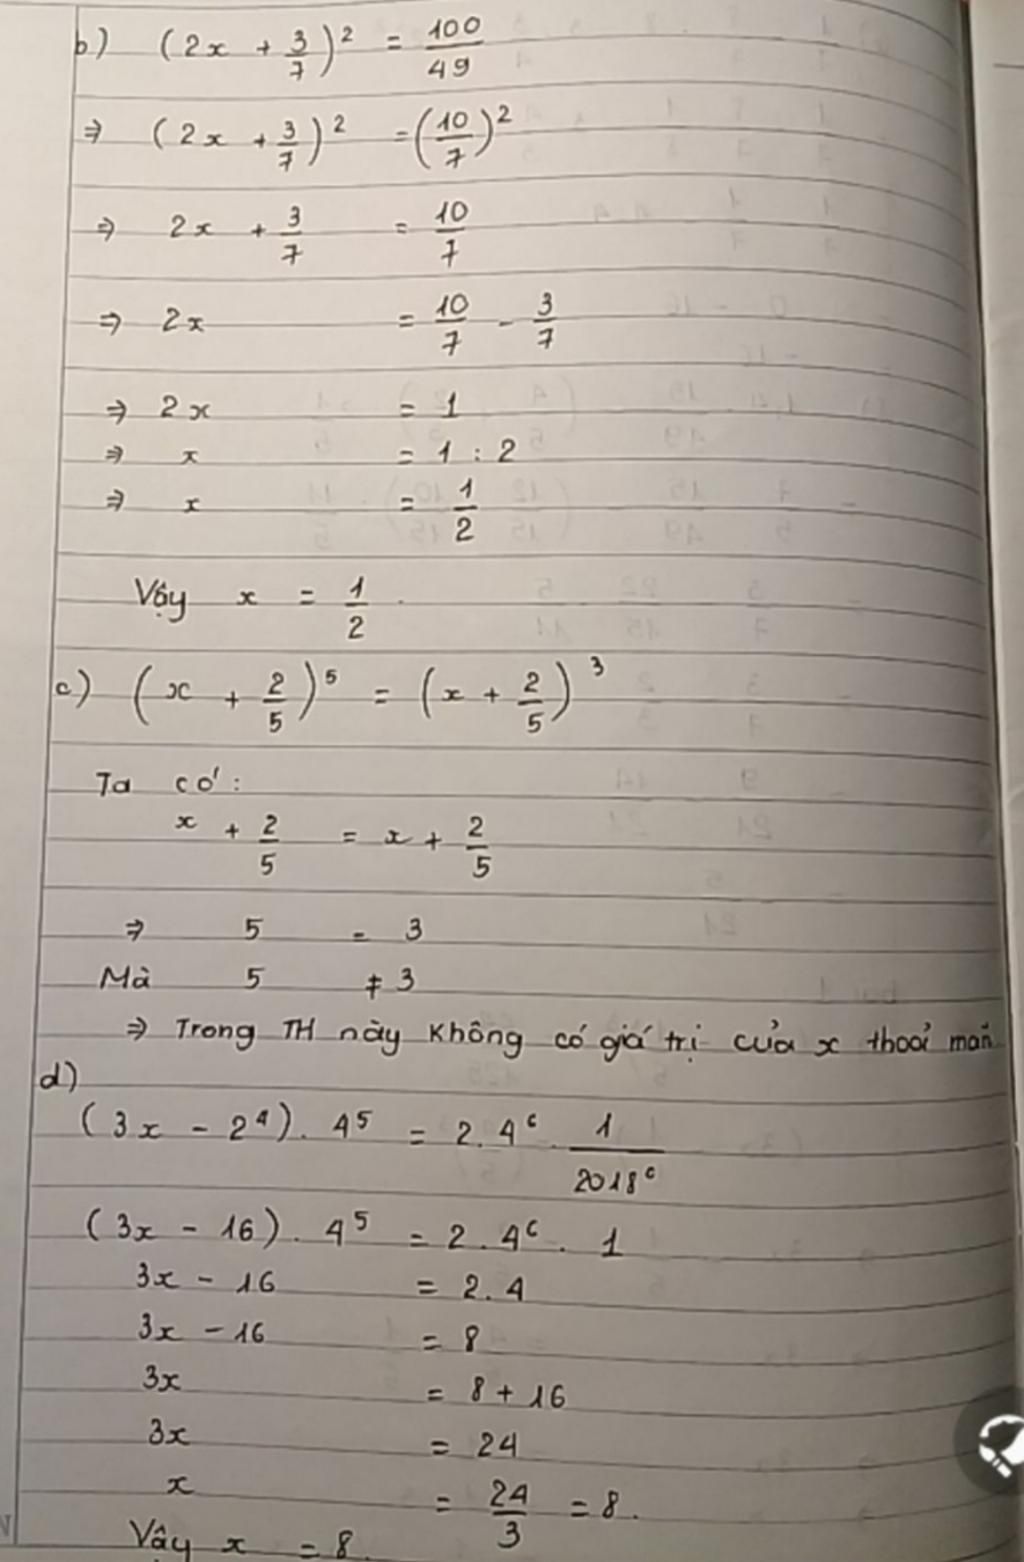 b) (2x + 3/7)² = 100/49
⇒ (2x + 3/7)² = (10/7)²
⇒ 2x + 3/7 = 10/7
⇒ 2x = 10/7 - 3/7
⇒ 2x = 1
⇒ x = 1 : 2
⇒ x = 1/2
Vậy x = 1/2.
c) (x + 2/5)⁵ = (x + 2/5)³
Ta có:
x + 2/5 = x + 2/5
⇒ 5 = 3
Mà 5 ≠ 3
⇒ Trong TH này không có giá trị của x thoả mãn
d)
(3x - 2⁴). 4⁵ = 2. 4⁶. 1/2018⁰
(3x - 16). 4⁵ = 2. 4⁶. 1
3x - 16 = 2. 4
3x - 16 = 8
3x = 8 + 16
3x = 24
x = 24/3 = 8.
Vậy x = 8.